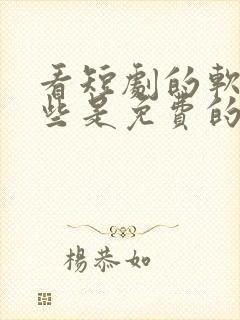 看短劇的軟
些是免費的
楊恭如